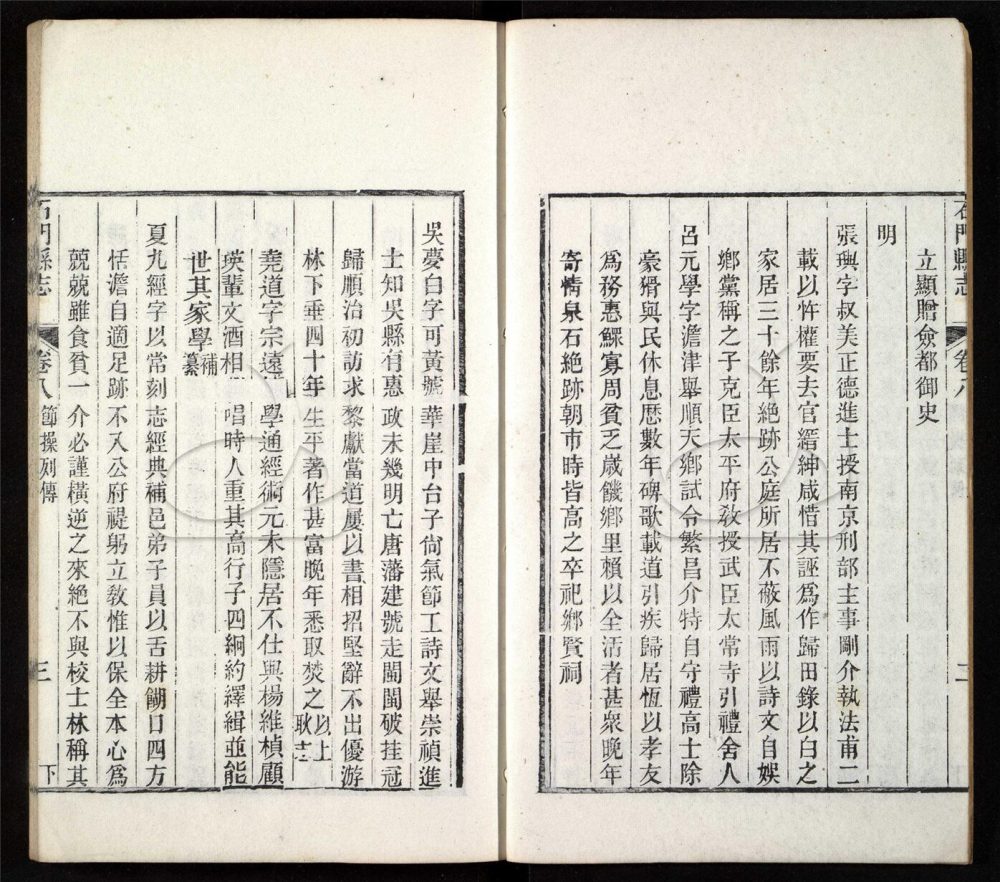 石門縣志
卷八
二
立顯贈僉都御史
明
張璵字叔美正德進士授南京刑部主事剛介執法甫二
載以忤權要去官縉紳咸惜其誣爲作歸田錄以白之
家居三十餘年絶跡公庭所居不蔽風雨以詩文自娛
鄉黨稱之子克臣太平府敎授武臣太常寺引禮舍人
呂元學字澹津舉順天鄉試令繁昌介特自守禮高士除
豪猾與民休息歴數年碑歌載道引疾歸居恆以孝友
爲務惠鰥寡周貧乏歲饑鄉里賴以全活者甚衆晚年
寄情泉石絶跡朝市時皆高之卒祀鄉賢祠
吳夢白字可黃號華崖中台子尙氣節工詩文舉崇禎進
士知吳縣有惠政未幾明亡唐藩建號走閩閩破挂冠
歸順治初訪求黎獻當道屢以書相招堅辭不出優游
林下垂四十年生平著作甚富晚年悉取焚之以上耿志
堯道字宗遠學通經術元末隱居不仕與楊維楨顧
瑛輩文酒相唱時人重其高行子四綱約繹緝並能
世其家學補纂
夏九經字以常刻志經典補邑弟子員以舌耕餬口四方
恬澹自適足跡不入公府禔躬立敎惟以保全本心爲
兢兢雖食貧一介必謹橫逆之來絶不與校士林稱其
石門縣志
卷八
節操列傳
三
下